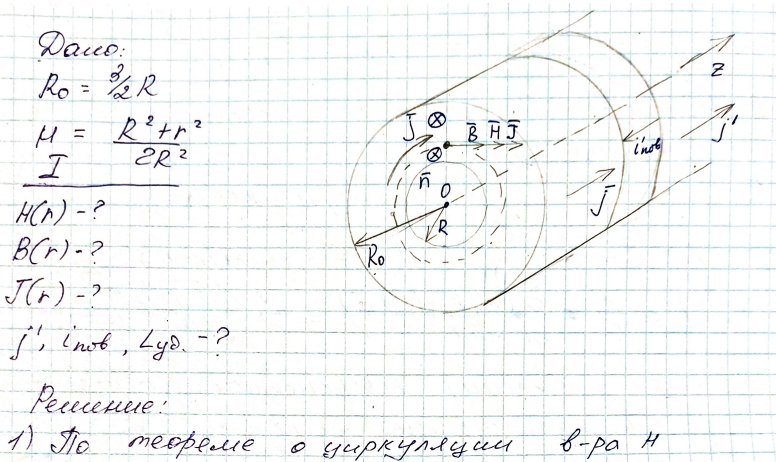 Дано:
R₀ = 3/2 R
μ = (R² + r²) / 2R²
I
H(r) - ?
B(r) - ?
J(r) - ?
j', iпов, Lуд. - ?
J̄
⊗
⊗
B̄ H̄ J̄
n̄
O
R
R₀
z
j̄'
iпов
j̄
Решение:
1) По теореме о циркуляции в-ра H